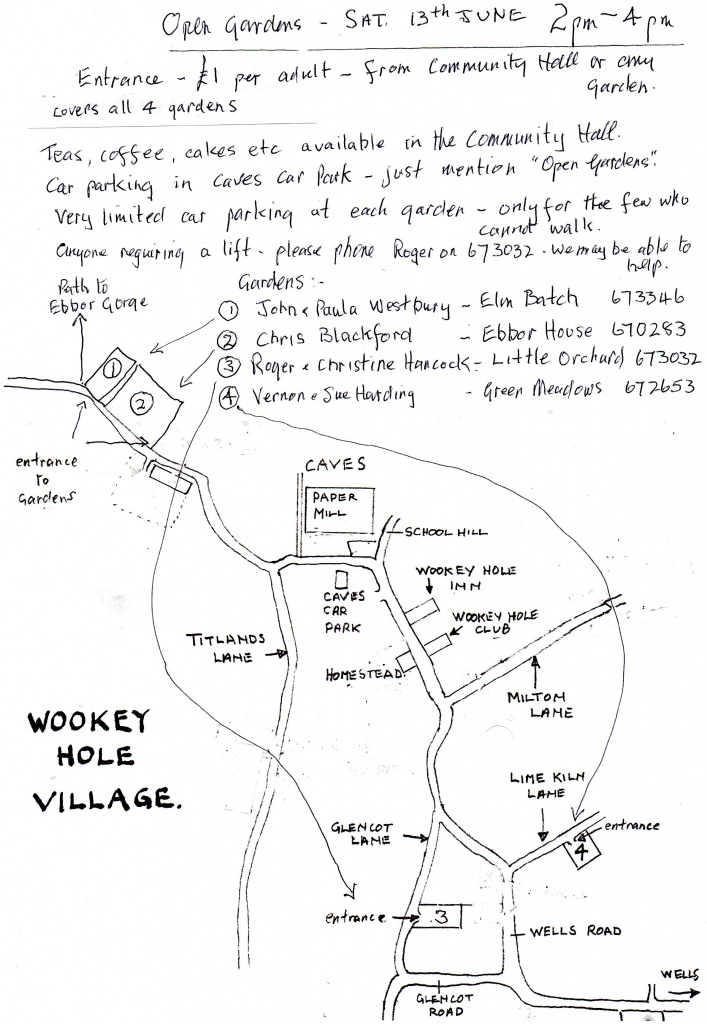 Open Gardens - SAT. 13th JUNE 2pm - 4pm
Entrance - £1 per adult - from Community Hall or any
Garden.
covers all 4 gardens
Teas, coffee, cakes etc available in the Community Hall.
Car parking in Caves Car Park - just mention "Open Gardens".
Very limited car parking at each garden - only for the few who
cannot walk.
Anyone requiring a lift - please phone Roger on 673032 - we may be able to
help.
Gardens :-
① John & Paula Westbury - Elm Batch 673346
② Chris Blackford - Ebbor House 670283
③ Roger & Christine Hancock - Little Orchard 673032
④ Vernon & Sue Harding - Green Meadows 672653
Path to
Ebbor Gorge
①
②
entrance
to
Gardens
CAVES
PAPER
MILL
SCHOOL HILL
WOOKEY HOLE
INN
CAVES
CAR
PARK
WOOKEY HOLE
CLUB
TITLANDS
LANE
HOMESTEAD
MILTON
LANE
WOOKEY
HOLE
VILLAGE.
LIME KILN
LANE
GLENCOT
LANE
entrance
4
entrance
3
WELLS ROAD
WELLS
GLENCOT
ROAD